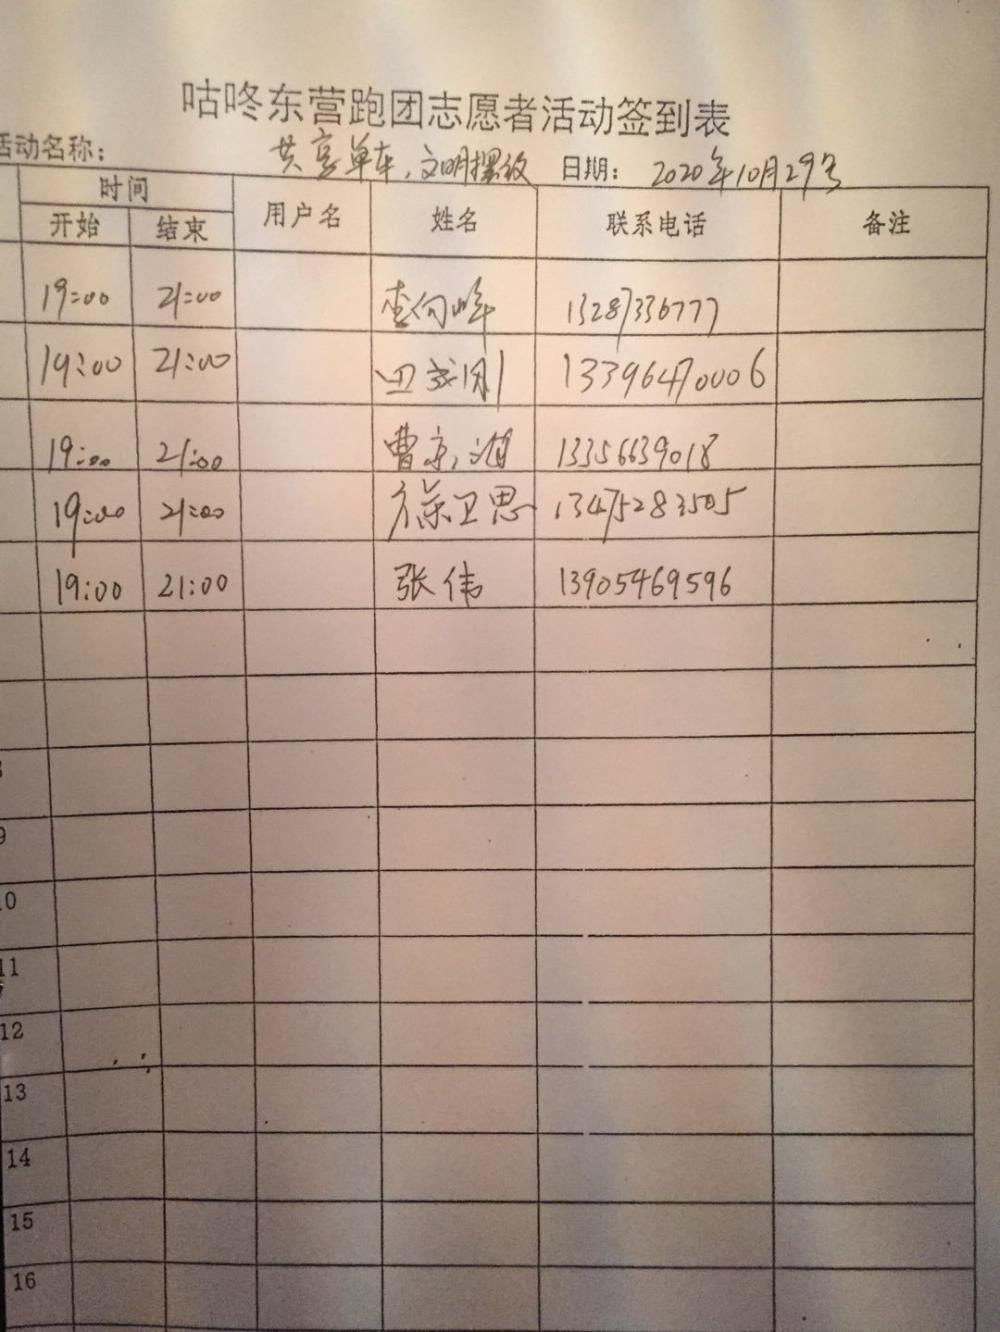 咕咚东营跑团志愿者活动签到表
活动名称: 共享单车,文明摆放 日期: 2020年10月29号
时间 用户名 姓名 联系电话 备注
开始 结束
19:00 21:00 13287336777
19:00 21:00 13396470006
19:00 21:00 曹 13356639018
19:00 21:00 卫思 13475283505
19:00 21:00 张伟 13905469596
9
10
11
12
13
14
15
16